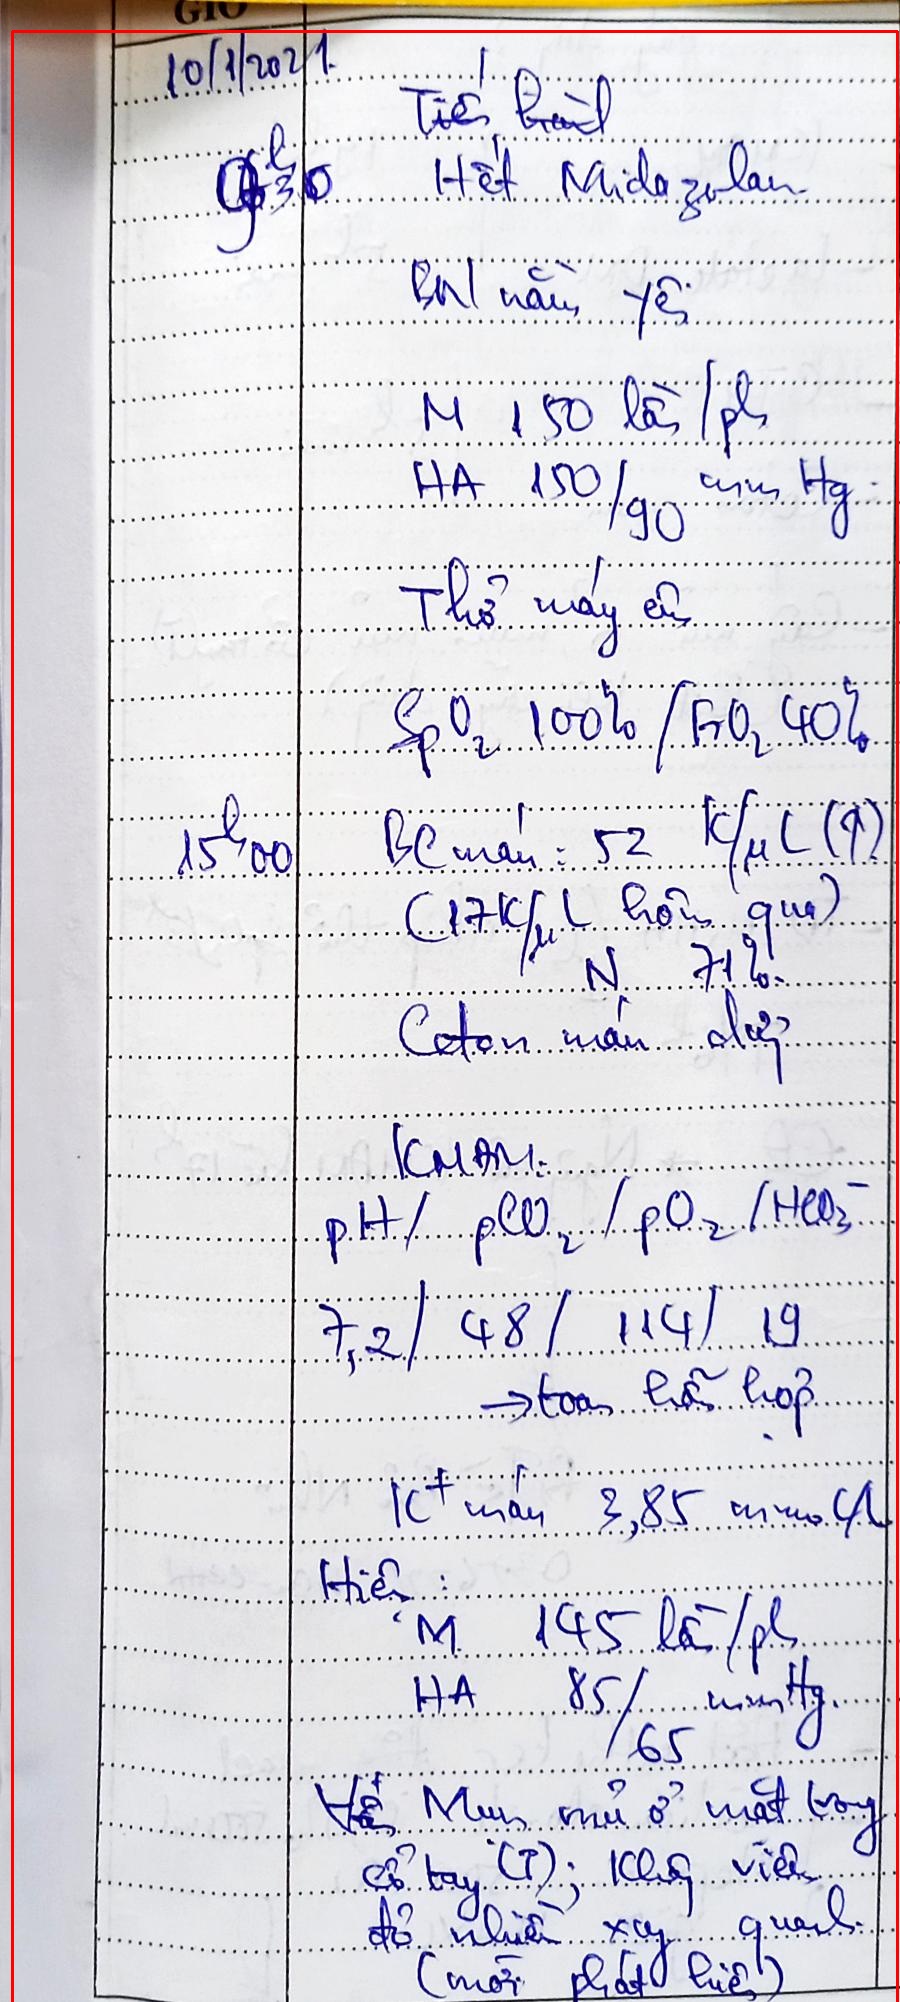 GIỜ
10/1/2021.
Tiến hành
9h30 Hết Midazolam
BN nằm yên
M 150 lần/ph
HA 150/90 mmHg.
Thở máy êm
SpO2 100% / FiO2 40%
15h00 BC máu: 52 K/μL (↑)
(17K/μL hôm qua)
N 71%.
Ceton máu
KMĐM.
pH/ pCO2 / pO2 / HCO3-
7,2/ 48/ 114/ 19
→ toan hỗn hợp
K+ máu 3,85 mmol/L
Hiện:
M 145 lần/ph
HA 85/65 mmHg.
Mụn mủ ở mặt trong
cổ tay (T); Không viêm
đỏ nhiều xung quanh.
(mới phát hiện)